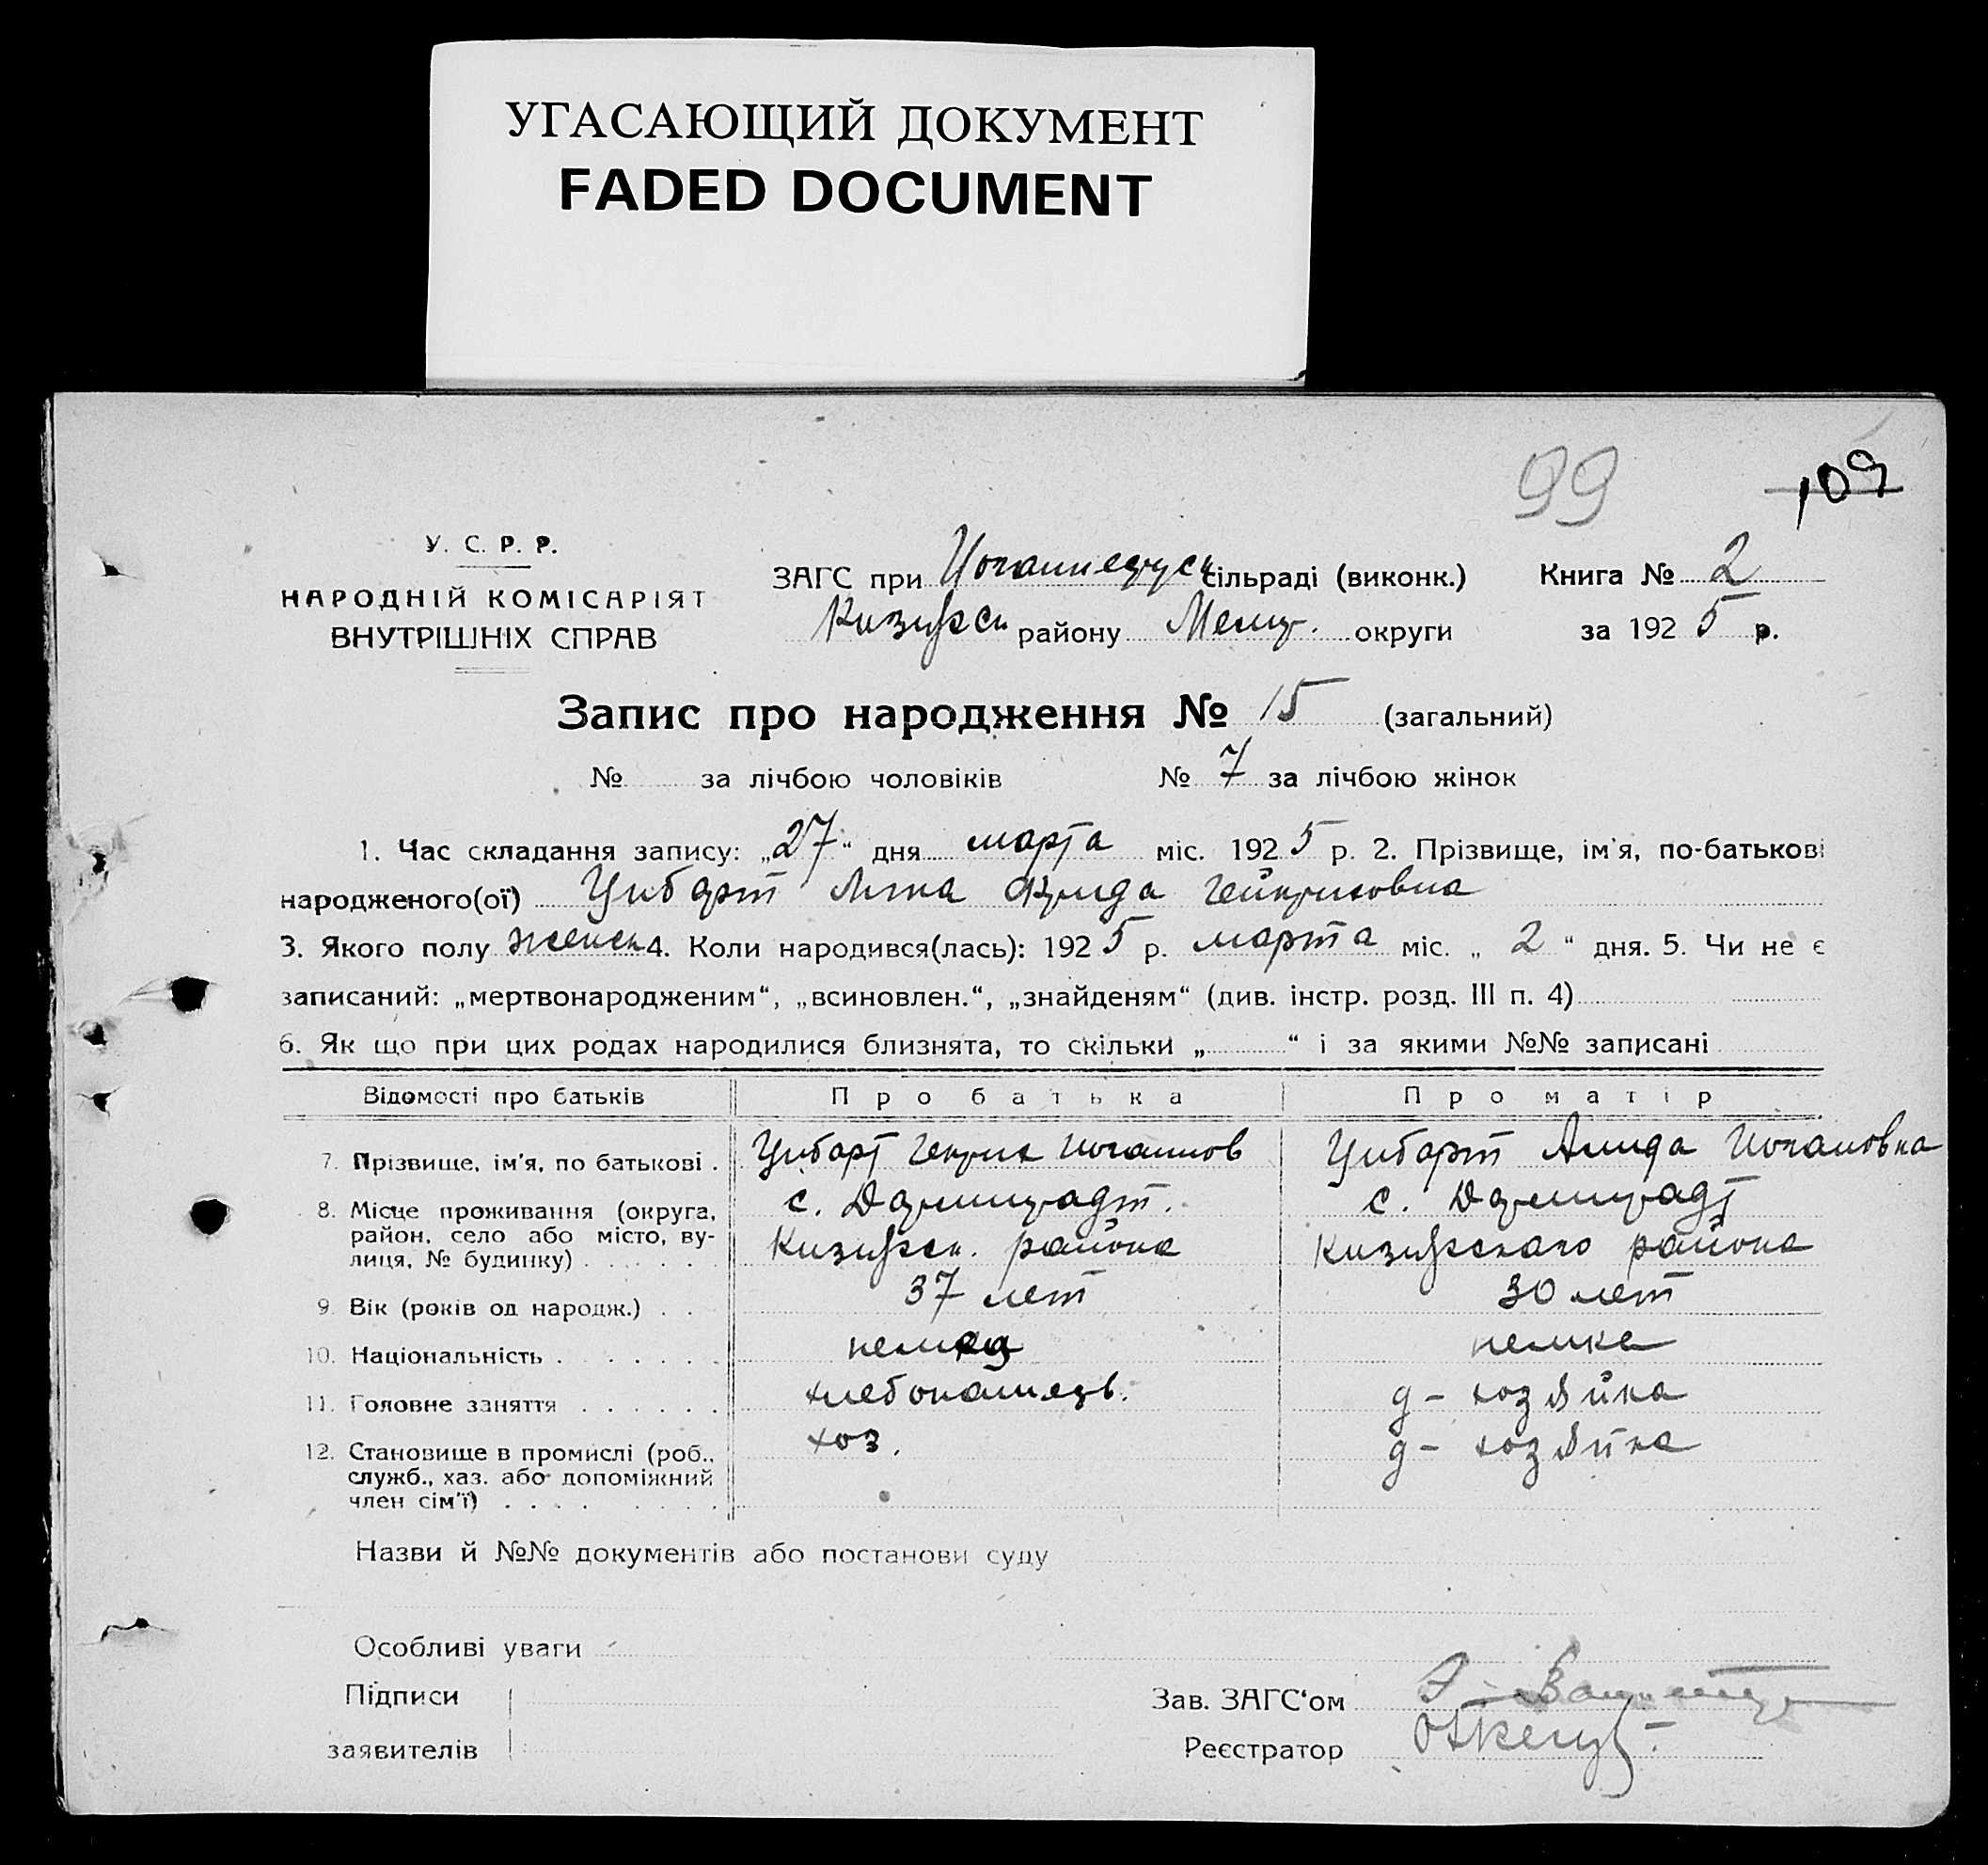 УГАСАЮЩИЙ ДОКУМЕНТ
FADED DOCUMENT
99 109
У. С. Р. Р.
НАРОДНІЙ КОМІСАРІЯТ
ВНУТРІШНІХ СПРАВ
ЗАГС при Иоганнедруск сільраді (виконк.) Книга № 2
району Мелит. округи за 1925 р.
Запис про народження № 15 (загальний)
№ за лічбою чоловіків № 7 за лічбою жінок
1. Час складання запису: „27“ дня марта міс. 1925 р. 2. Прізвище, ім'я, по-батькові
народженого(ої) Цибарт Фрида Гейнриховна
3. Якого полу женск 4. Коли народився(лась): 1925 р. марта міс. „2“ дня. 5. Чи не є
записаний: „мертвонародженим“, „всиновлен.“, „знайденям“ (див. інстр. розд. III п. 4)
6. Як що при цих родах народилися близнята, то скільки „ “ і за якими №№ записані
Відомості про батьків Про батька Про матір
7. Прізвище, ім'я, по батькові . Цибарт Генрих Иоганнов Цибарт Алида Иогановна
8. Місце проживання (округа, район, село або місто, вулиця, № будинку) с. Дармштадт. с. Дармштадт
района района
9. Вік (років од народж.) . . 37 лет 30 лет
10. Національність . . . . . . . немец немка
11. Головне заняття . . . . . . хлебопашец. д - хозяйка
12. Становище в промислі (роб., хоз. д - хозяйка
служб., хаз. або допоміжний
член сім'ї) . . . .
Назви й №№ документів або постанови суду
Особливі уваги
Підписи
заявителів
Зав. ЗАГС‘ом
Реєстратор